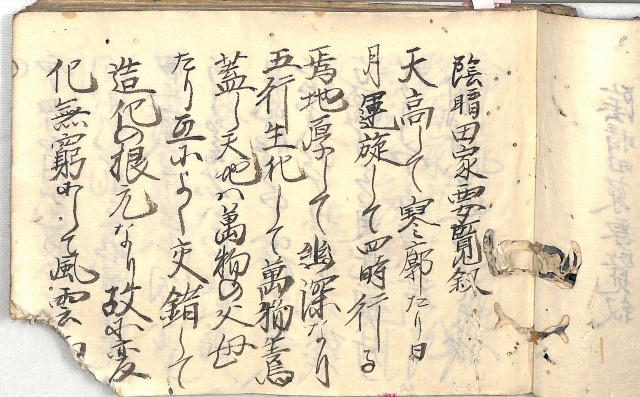 陰晴田家要覧叙
天高して寥廓たり日
月運旋して四時行る
焉地厚して幽深なり
五行生化して萬物蕃焉
蓋し天地ハ萬物の父母
たり互によく交錯して
造化の根元なり故に変
化無窮にして風雲